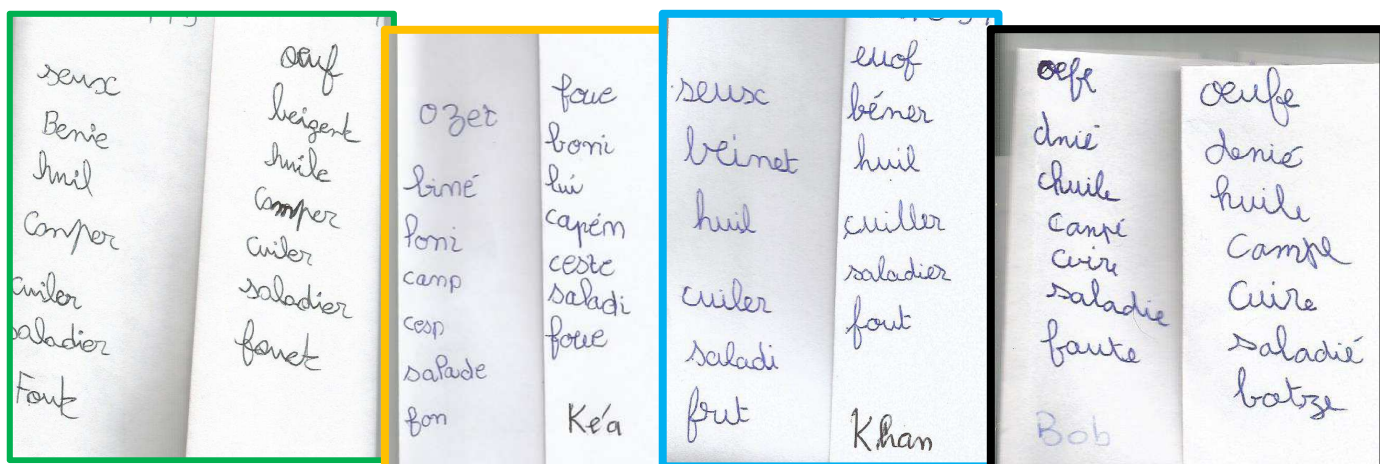 seux
Benie
huil
Camper
cuiler
saladier
Fout
oeuf
beigent
huile
Camper
cuiler
saladier
fouet
ozet
biné
loni
camp
cesp
salade
fon
foue
boni
lui
capém
ceste
saladi
foue
Kéa
seusc
beinet
huil
cuiler
saladi
frut
euof
béner
huil
cuiller
saladier
fout
Khan
oefe
dnié
chuile
canpé
cuire
saladie
faute
Bob
oeufe
denié
huile
Campe
Cuire
saladié